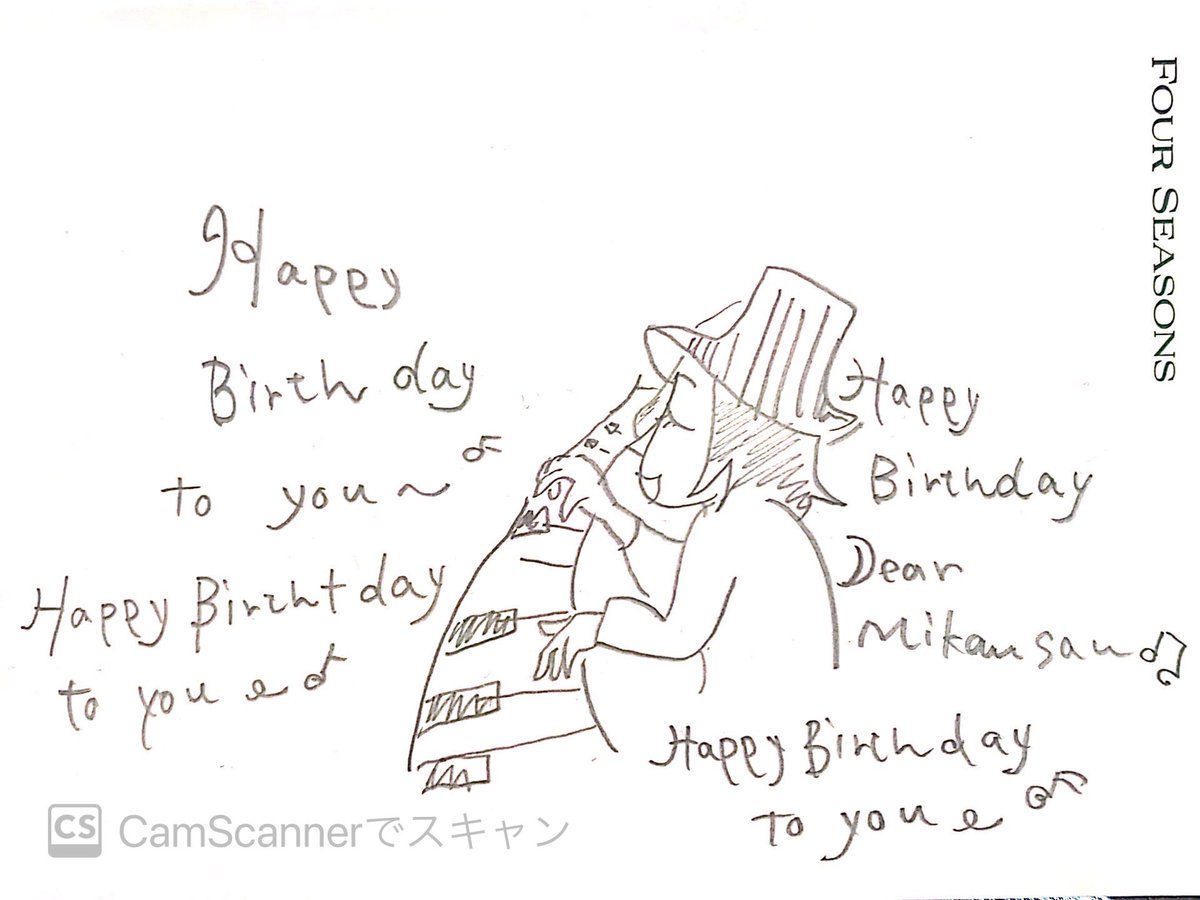 Happy
Birthday
to you～♪
Happy Birthtday
to you ♪
Happy
Birthday
Dear
Mikansan♫
Happy Birthday
to you ♪
FOUR SEASONS
CS CamScannerでスキャン